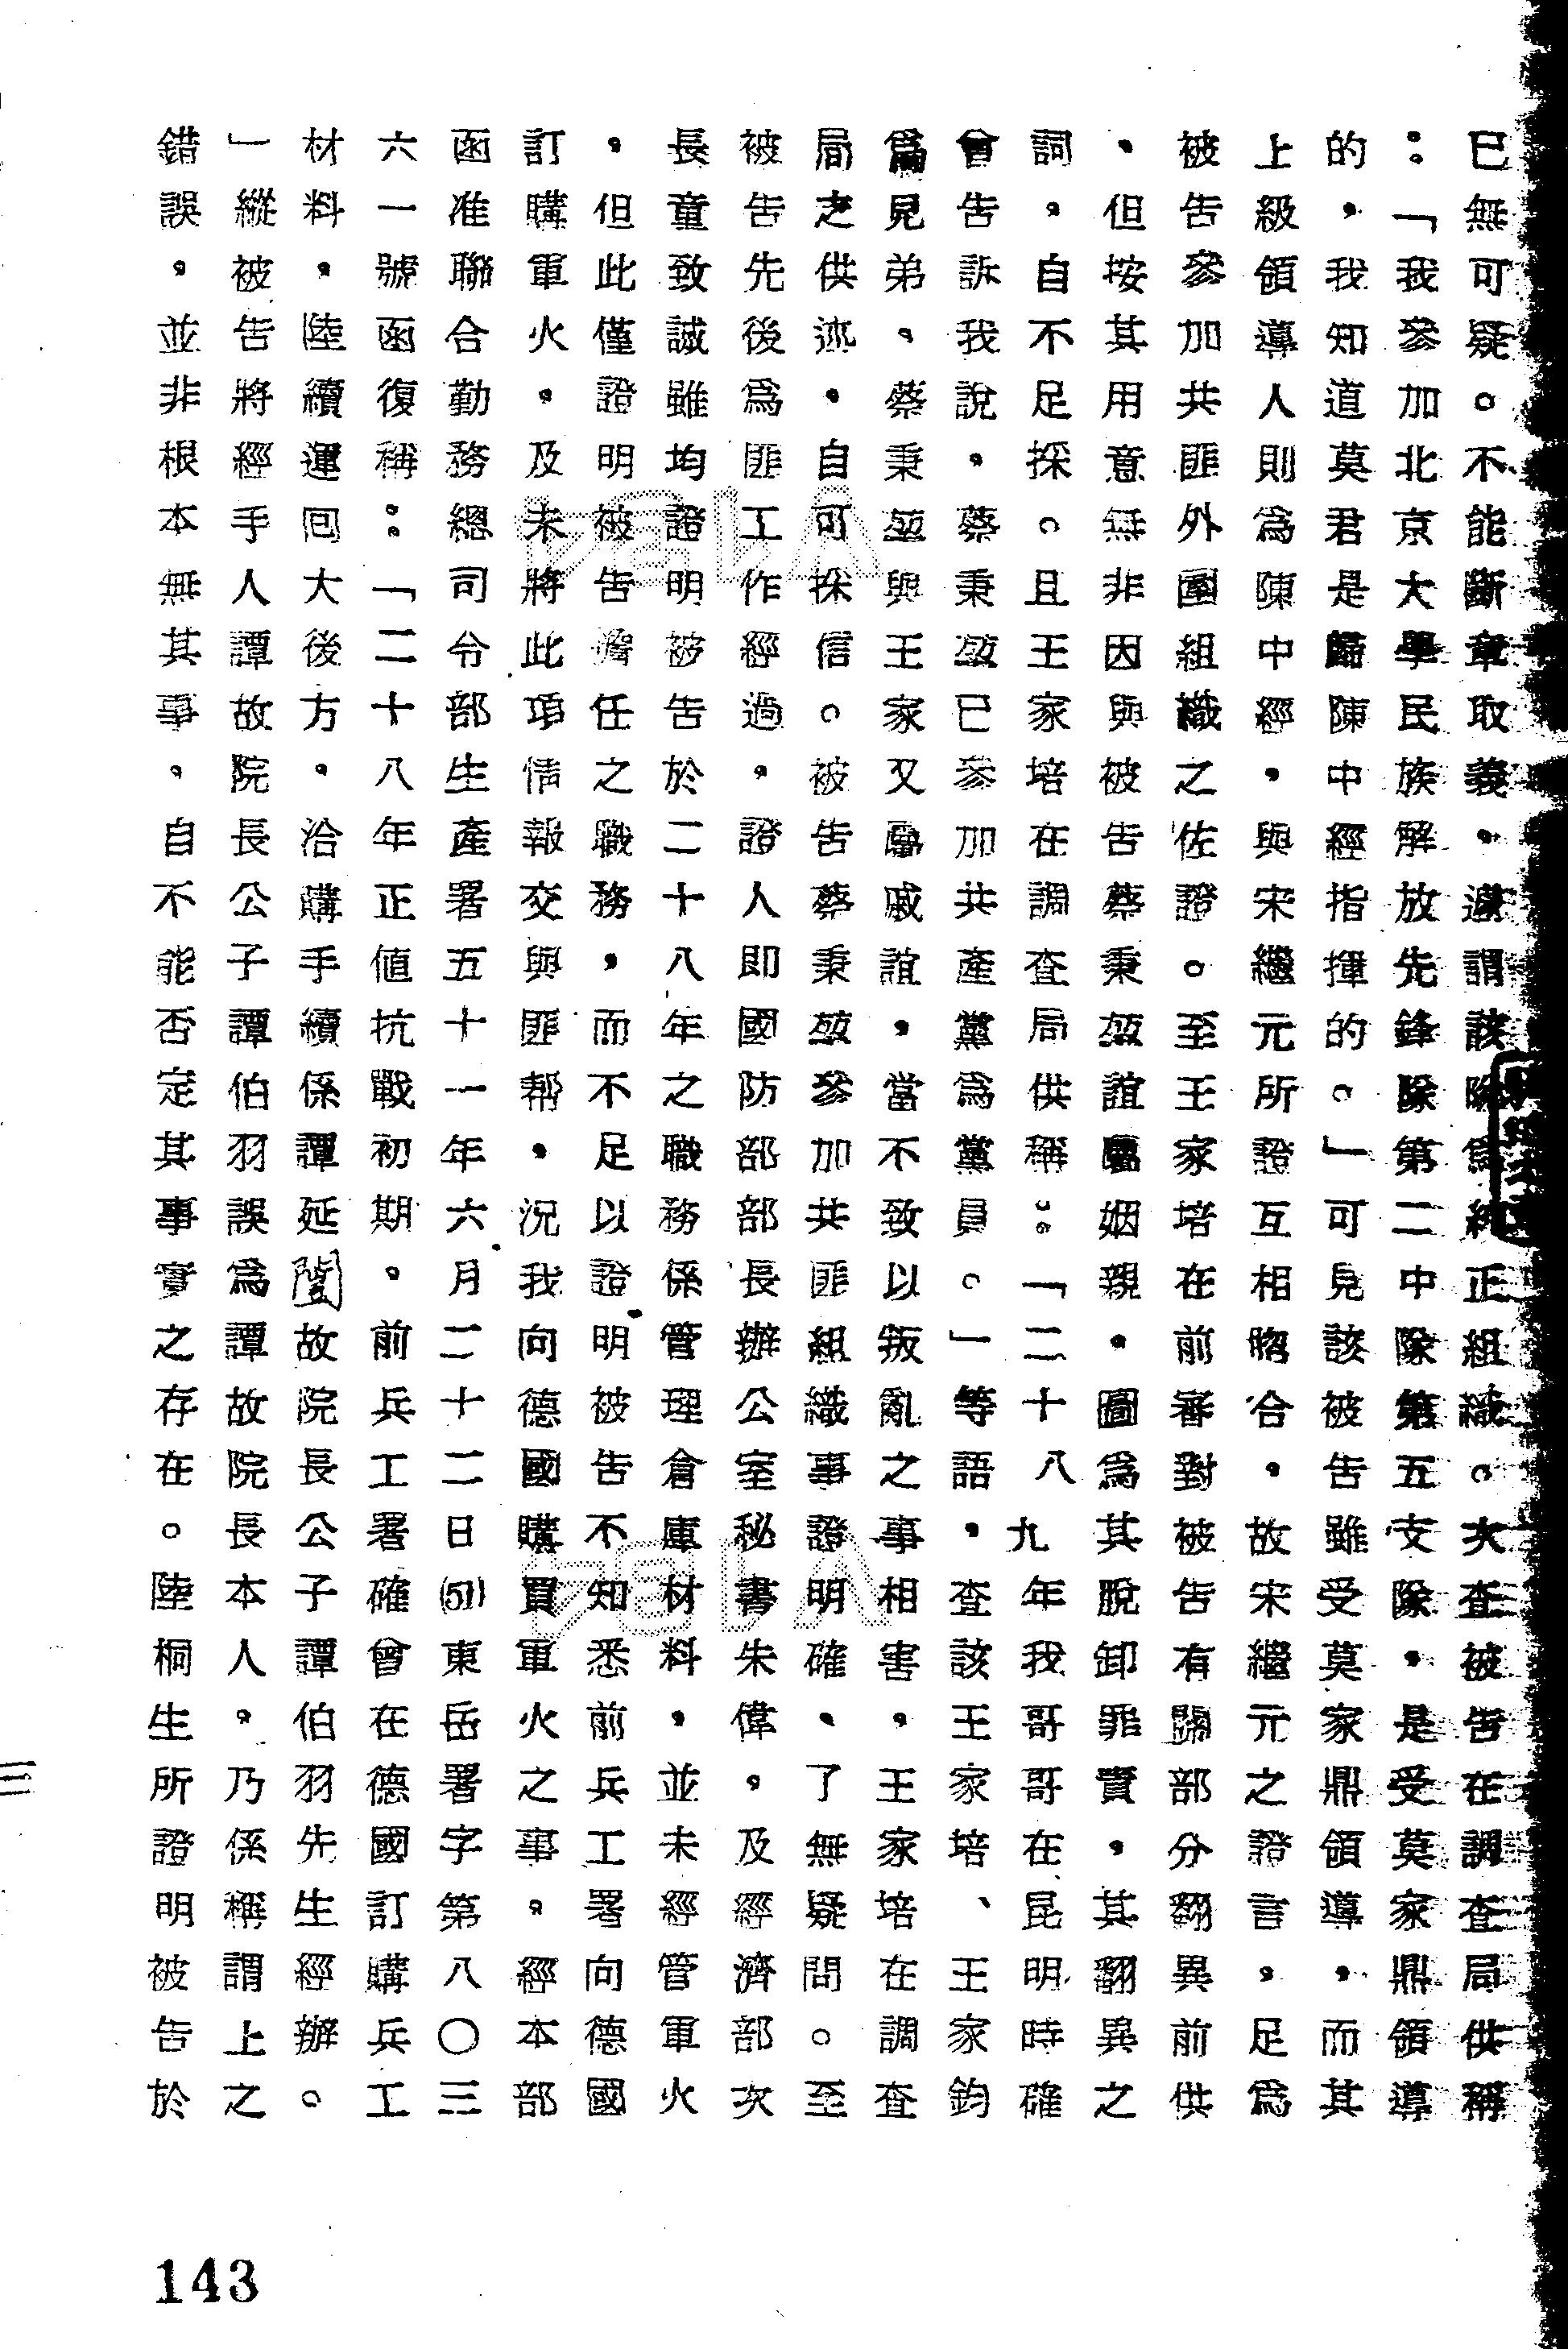 已無可疑。不能斷章取義，遽謂該隊為純正組織。次查被告在調查局供稱
：「我參加北京大學民族解放先鋒隊第二中隊第五支隊，是受莫家鼎領導
的，我知道莫君是歸陳中經指揮的。」可見該被告雖受莫家鼎領導，而其
上級領導人則為陳中經，與宋繼元所證互相脗合，故宋繼元之證言，足為
被告參加共匪外圍組織之佐證。至王家培在前審對被告有關部分翻異前供
，但按其用意無非因與被告蔡秉堃誼屬姻親，圖為其脫卸罪責，其翻異之
詞，自不足採。且王家培在調查局供稱：「二十八九年我哥哥在昆明時確
曾告訴我說，蔡秉堃已參加共產黨為黨員。」等語，查該王家培、王家鈞
為兄弟，蔡秉堃與王家又屬戚誼，當不致以叛亂之事相害，王家培在調查
局之供述，自可採信。被告蔡秉堃參加共匪組織事證明確，了無疑問。至
被告先後為匪工作經過，證人即國防部部長辦公室秘書朱偉，及經濟部次
長童致誠雖均證明被告於二十八年之職務係管理倉庫材料，並未經管軍火
，但此僅證明被告擔任之職務，而不足以證明被告不知悉前兵工署向德國
訂購軍火，及未將此項情報交與匪幫，況我向德國購買軍火之事，經本部
函准聯合勤務總司令部生產署五十一年六月二十二日(51)東岳署字第八〇三
六一號函復稱：「二十八年正值抗戰初期。前兵工署確曾在德國訂購兵工
材料，陸續運回大後方，洽購手續係譚延闓故院長公子譚伯羽先生經辦。
」縱被告將經手人譚故院長公子譚伯羽誤為譚故院長本人，乃係稱謂上之
錯誤，並非根本無其事，自不能否定其事實之存在。陸桐生所證明被告於
三
143